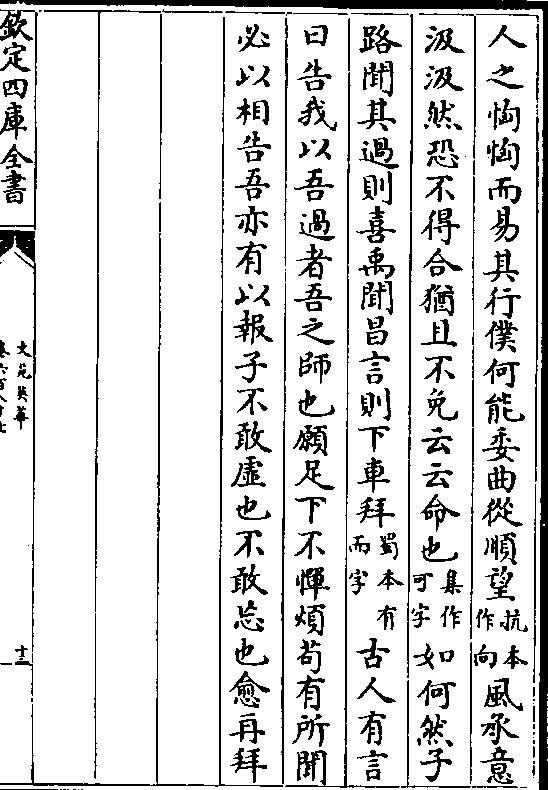 人之恟恟而易其行僕何能委曲從順望杭本作向風承意
汲汲然恐不得合猶且不免云云命也集作可字如何然子
路聞其過則喜禹聞昌言則下車拜蜀本有而字古人有言
曰告我以吾過者吾之師也願足下不憚煩苟有所聞
必以相告吾亦有以報子不敢虛也不敢忘也愈再拜
欽定四庫全書
文苑英華
卷六百八十七
十三